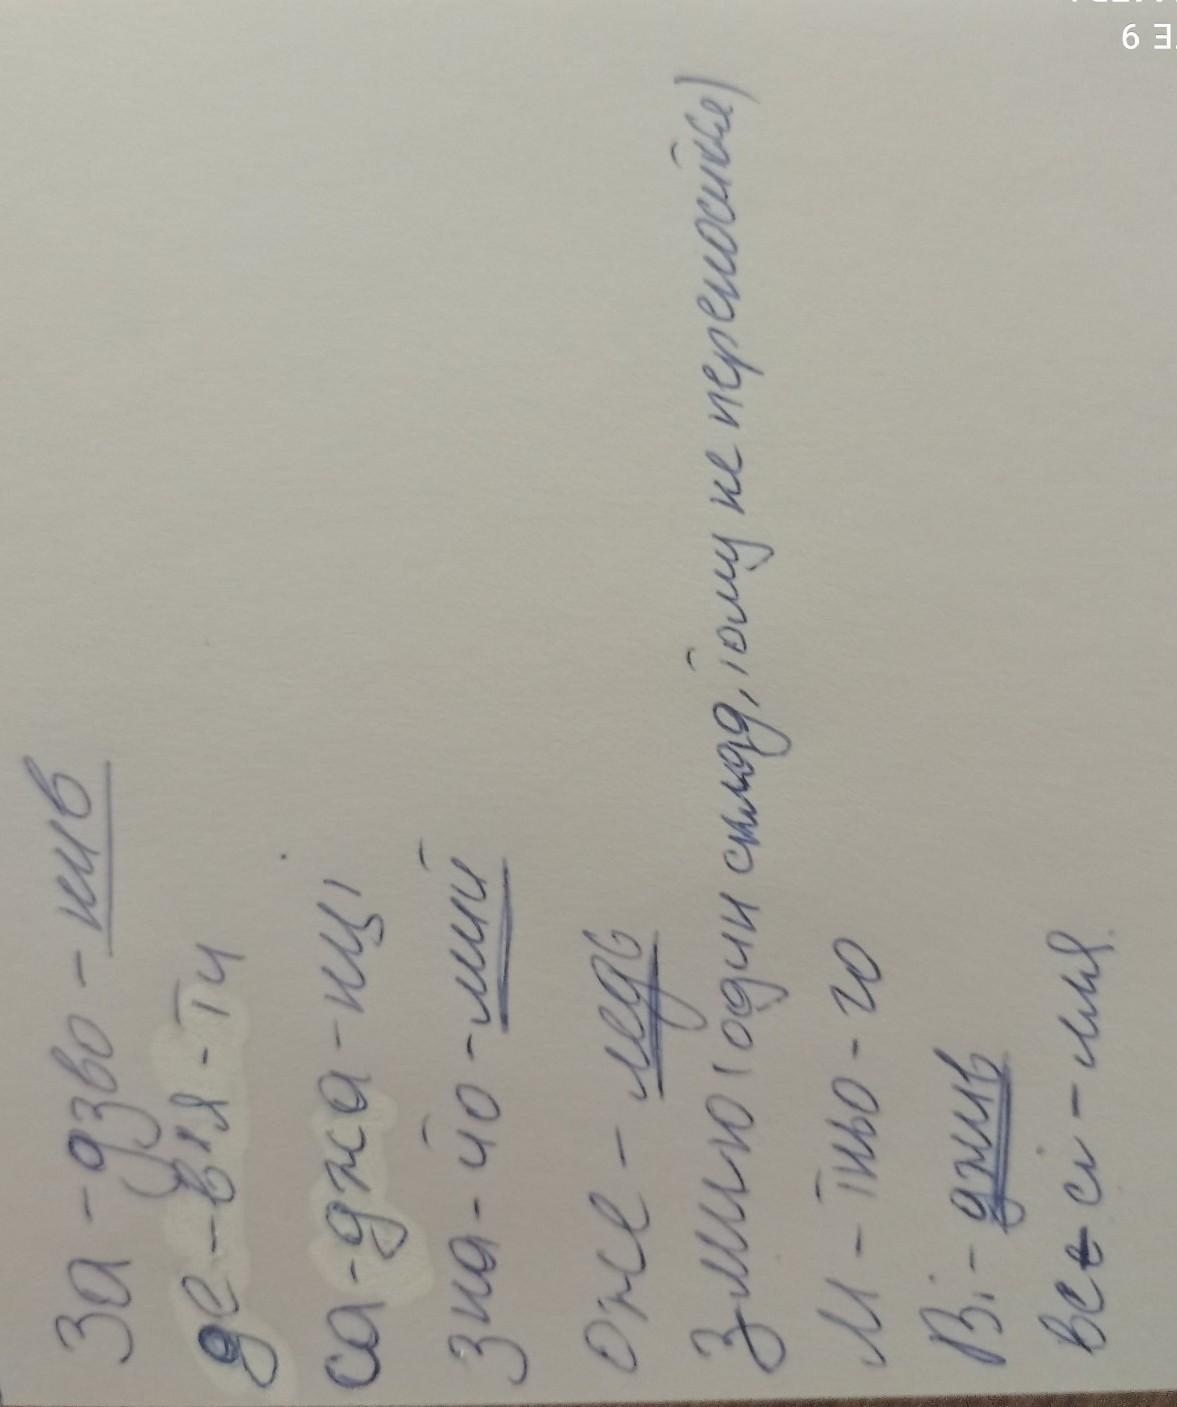 За - дзво - нив
де - в'я - ти
са - джа - нці
зна - йо - мий
оже - ледь
Змию (один склад, тому не переноситься)
м - їньо - го
Ві - джив
все сі - мля